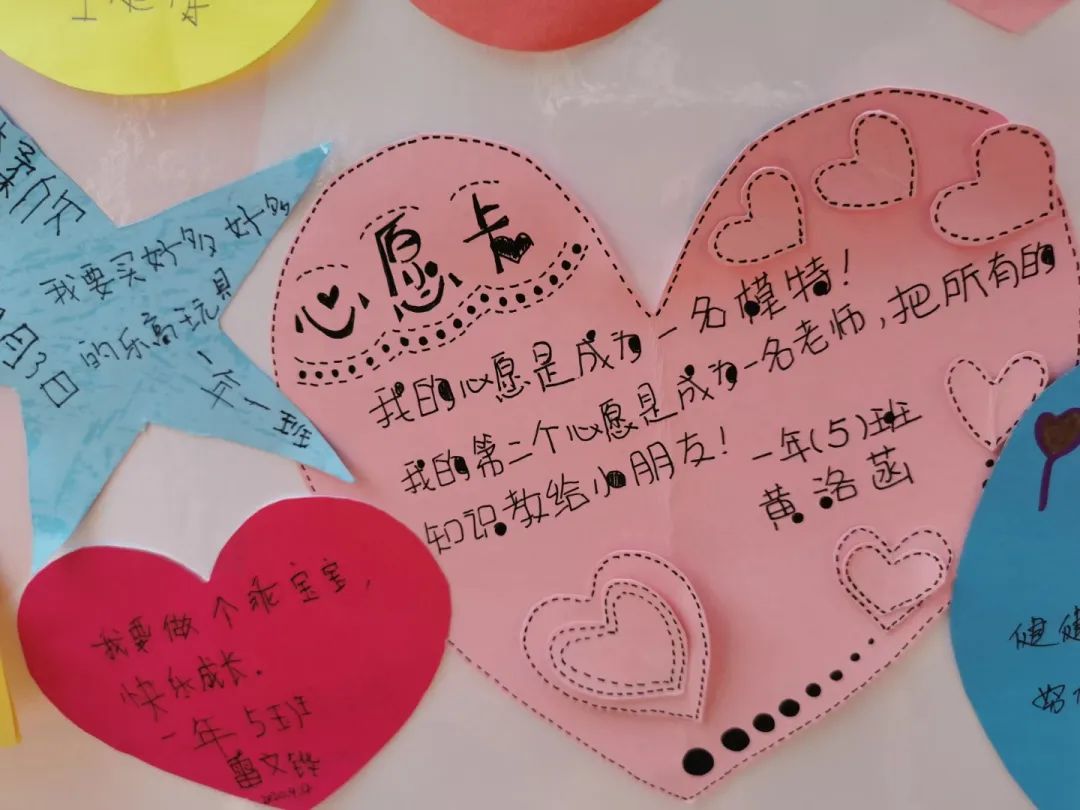 我要买好多好多
的乐高玩具
一年一班
心愿卡
我的心愿是成为一名模特！
我的第二个心愿是成为一名老师，把所有的
知识教给小朋友！
一年（5）班
黄洛菡
我要做个乖宝宝，
快乐成长。
一年5班
雷文铧
健